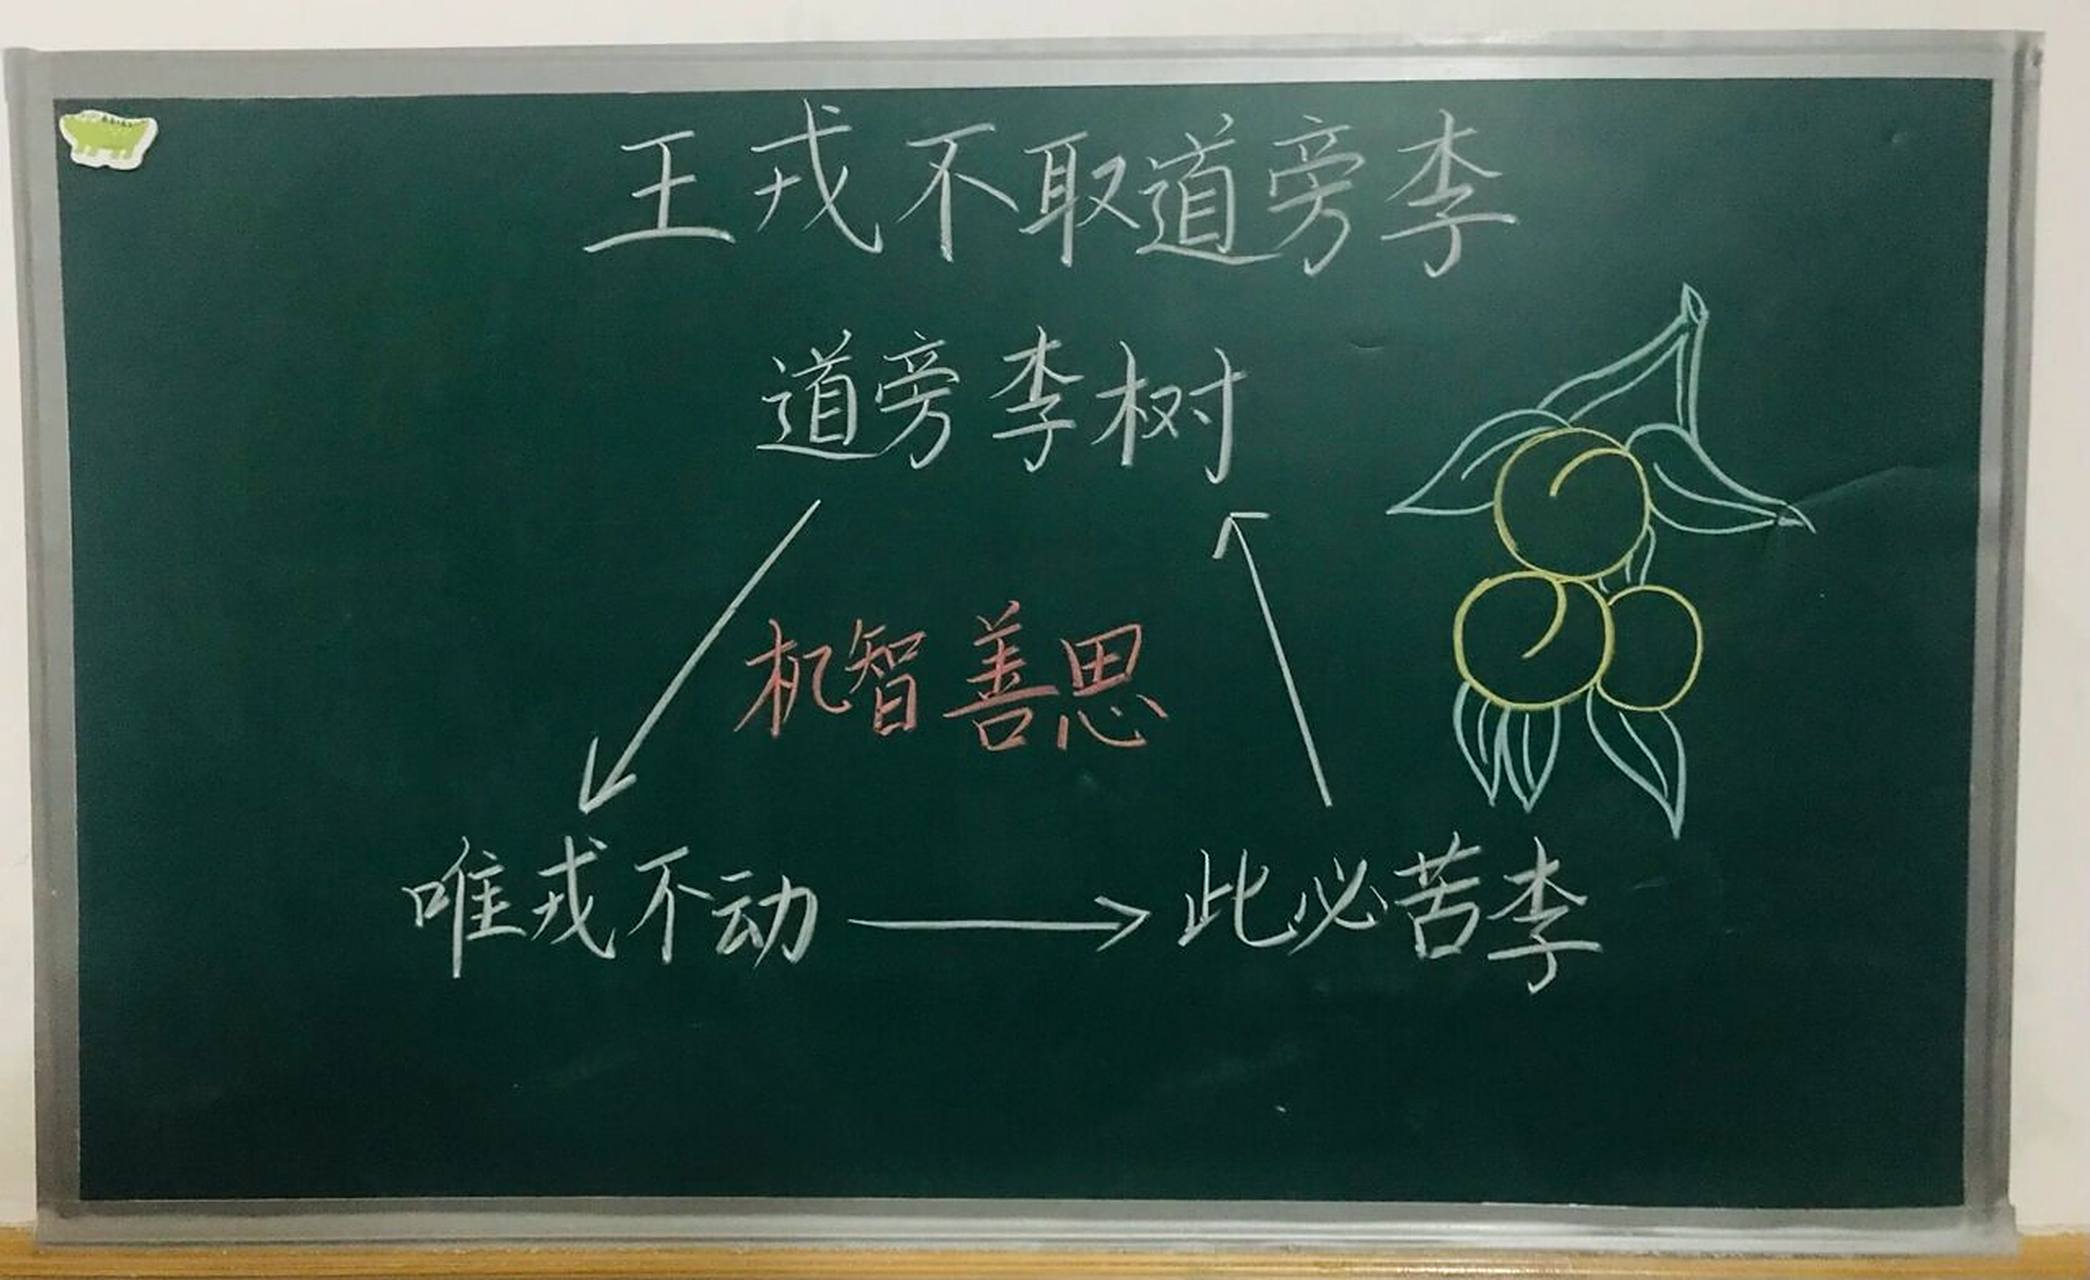 王戎不取道旁李
道旁李树
机智善思
唯戎不动
此必苦李